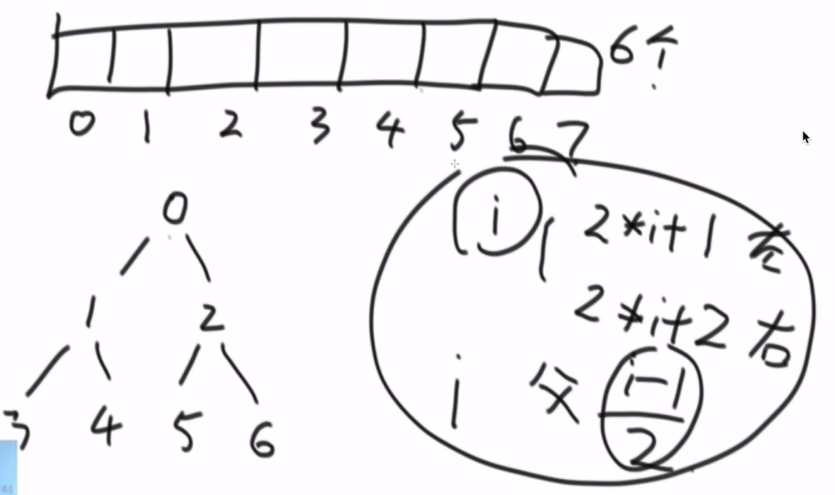 6个
0 1 2 3 4 5 6 7
0
1 2
3 4 5 6
i 2*i+1 左
2*i+2 右
i 父 i-1
2